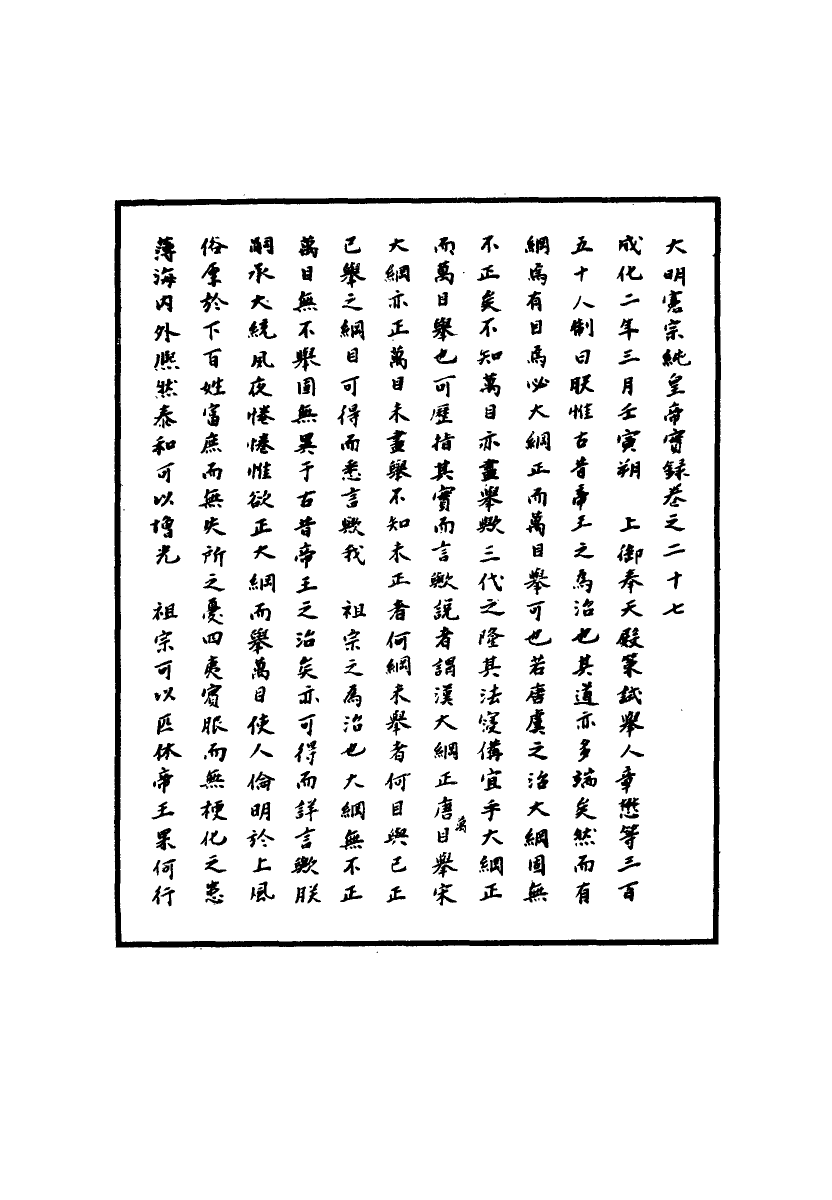 大明憲宗純皇帝實録卷之二十七
成化二年三月壬寅朔　上御奉天殿策試舉人章懋等三百
五十人制曰朕惟古昔帝王之爲治也其道亦多端矣然而有
綱焉有目焉必大綱正而萬目舉可也若唐虞之治大綱固無
不正矣不知萬目亦盡舉歟三代之隆其法寖備宜乎大綱正
而萬目舉也可歷指其實而言歟説者謂漢大綱正唐萬目舉宋
大綱亦正萬目未盡舉不知未正者何綱未舉者何目與已正
已舉之綱目可得而悉言歟我　祖宗之爲治也大綱無不正
萬目無不舉固無異于古昔帝王之治矣亦可得而詳言歟朕
嗣承大統夙夜惓惓惟欲正大綱而舉萬目使人倫明於上風
俗厚於下百姓富庶而無失所之憂四夷賓服而無梗化之患
薄海内外熙然泰和可以增光　祖宗可以匹休帝王果何行